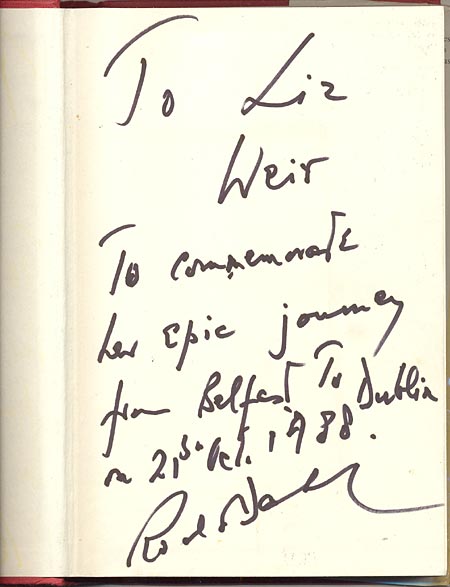 To Liz
Weir
To commemorate
her Epic journey
from Belfast To Dublin
on 21st Oct. 1988.
Roald Dahl